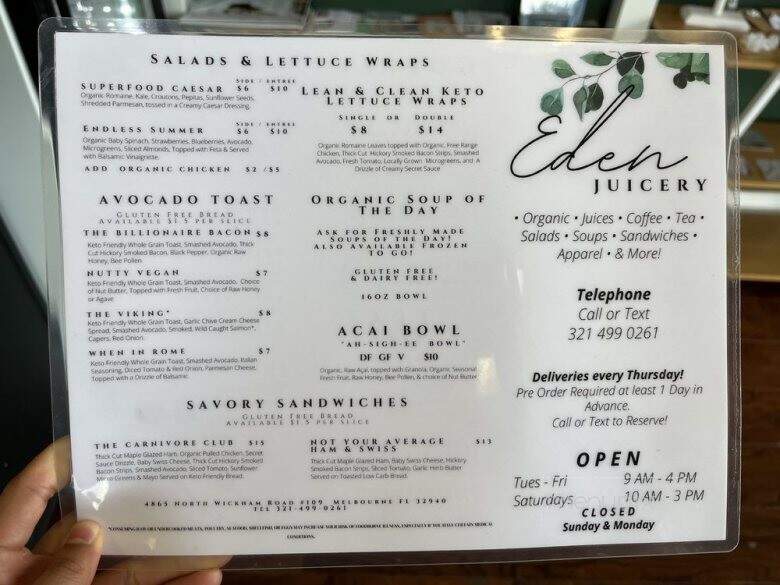 SALADS & LETTUCE WRAPS
SIDE / ENTREE
SUPERFOOD CAESAR $6 $10
Organic Romaine, Kale, Croutons, Pepitas, Sunflower Seeds,
Shredded Parmesan, tossed in a Creamy Caesar Dressing.
SIDE / ENTREE
ENDLESS SUMMER $6 $10
Organic Baby Spinach, Strawberries, Blueberries, Avocado,
Microgreens, Sliced Almonds, Topped with Feta & Served
with Balsamic Vinaigrette.
ADD ORGANIC CHICKEN $2 /$5
LEAN & CLEAN KETO
LETTUCE WRAPS
SINGLE OR DOUBLE
$8 $14
Organic Romaine Leaves topped with Organic, Free Range
Chicken, Thick Cut Hickory Smoked Bacon Strips, Smashed
Avocado, Fresh Tomato, Locally Grown Microgreens, and A
Drizzle of Creamy Secret Sauce
AVOCADO TOAST
GLUTEN FREE BREAD
AVAILABLE $1.5 PER SLICE
THE BILLIONAIRE BACON $8
Keto Friendly Whole Grain Toast, Smashed Avocado, Thick
Cut Hickory Smoked Bacon, Black Pepper, Organic Raw
Honey, Bee Pollen
NUTTY VEGAN $7
Keto Friendly Whole Grain Toast, Smashed Avocado, Choice
of Nut Butter, Topped with Fresh Fruit, Choice of Raw Honey
or Agave
THE VIKING* $8
Keto Friendly Whole Grain Toast, Garlic Chive Cream Cheese
Spread, Smashed Avocado, Smoked, Wild Caught Salmon*,
Capers, Red Onion.
WHEN IN ROME $7
Keto Friendly Whole Grain Toast, Smashed Avocado, Italian
Seasoning, Diced Tomato & Red Onion, Parmesan Cheese,
Topped with a Drizzle of Balsamic
ORGANIC SOUP OF
THE DAY
ASK FOR FRESHLY MADE
SOUPS OF THE DAY!
ALSO AVAILABLE FROZEN
TO GO!
GLUTEN FREE
& DAIRY FREE!
16OZ BOWL
ACAI BOWL
"AH-SIGH-EE BOWL"
DF GF V $10
Organic, Raw Açaí, topped with Granola, Organic Seasonal
Fresh Fruit, Raw Honey, Bee Pollen, & choice of Nut Butter
SAVORY SANDWICHES
GLUTEN FREE BREAD
AVAILABLE $1.5 PER SLICE
THE CARNIVORE CLUB $15
Thick Cut Maple Glazed Ham, Organic Pulled Chicken, Secret
Sauce Drizzle, Baby Swiss Cheese, Thick Cut Hickory Smoked
Bacon Strips, Smashed Avocado, Sliced Tomato, Sunflower
Micro Greens & Mayo Served on Keto Friendly Bread.
NOT YOUR AVERAGE $13
HAM & SWISS
Thick Cut Maple Glazed Ham, Baby Swiss Cheese, Hickory
Smoked Bacon Strips, Sliced Tomato, Garlic Herb Butter
Served on Toasted Low Carb Bread.
4865 NORTH WICKHAM ROAD #109 MELBOURNE FL 32940
TEL 321-499-0261
*CONSUMING RAW OR UNDERCOOKED MEATS, POULTRY, SEAFOOD, SHELLFISH, OR EGGS MAY INCREASE YOUR RISK OF FOODBORNE ILLNESS, ESPECIALLY IF YOU HAVE CERTAIN MEDICAL
CONDITIONS.
Eden
JUICERY
• Organic • Juices • Coffee • Tea •
Salads • Soups • Sandwiches •
Apparel • & More!
Telephone
Call or Text
321 499 0261
Deliveries every Thursday!
Pre Order Required at least 1 Day in
Advance.
Call or Text to Reserve!
OPEN
Tues - Fri 9 AM - 4 PM
Saturdays 10 AM - 3 PM
CLOSED
Sunday & Monday